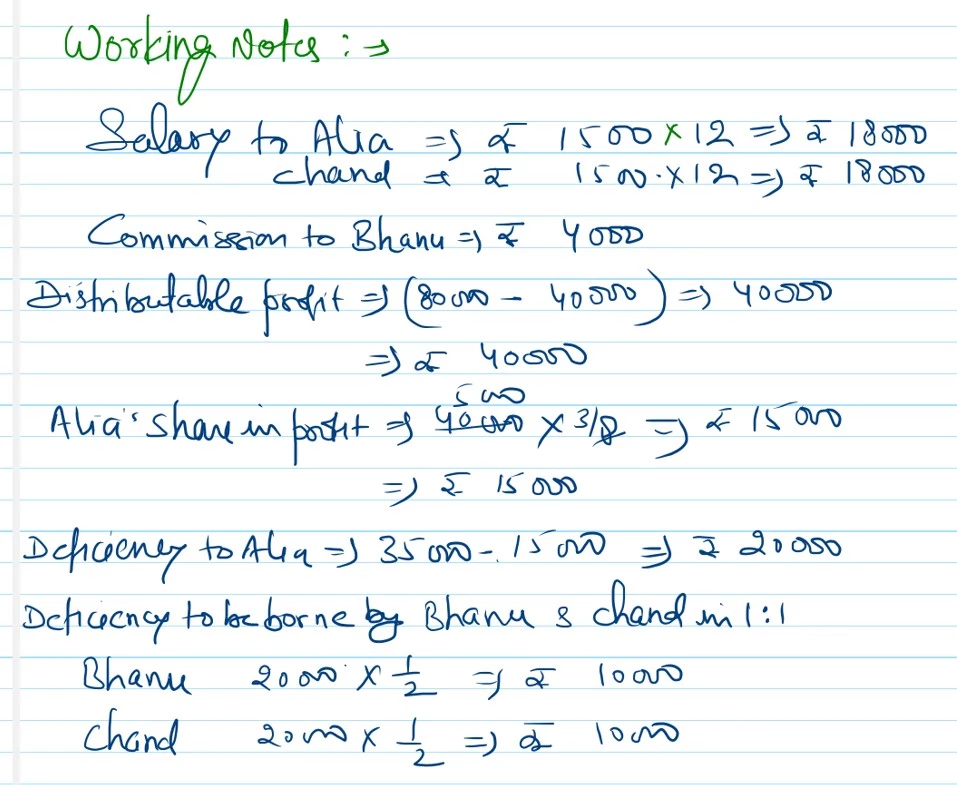 Working Notes : →
Salary to Alia ⇒ ₹ 1500 × 12 ⇒ ₹ 18000
Chand ⇒ ₹ 1500 × 12 ⇒ ₹ 18000
Commission to Bhanu ⇒ ₹ 4000
Distributable profit ⇒ (80000 - 40000) ⇒ 40000
⇒ ₹ 40000
5000
Alia's share in profit ⇒ 40000 × 3/8 ⇒ ₹ 15000
⇒ ₹ 15000
Deficiency to Alia ⇒ 35000 - 15000 ⇒ ₹ 20000
Deficiency to be borne by Bhanu & Chand in 1:1
Bhanu 20000 × 1/2 ⇒ ₹ 10000
Chand 20000 × 1/2 ⇒ ₹ 10000